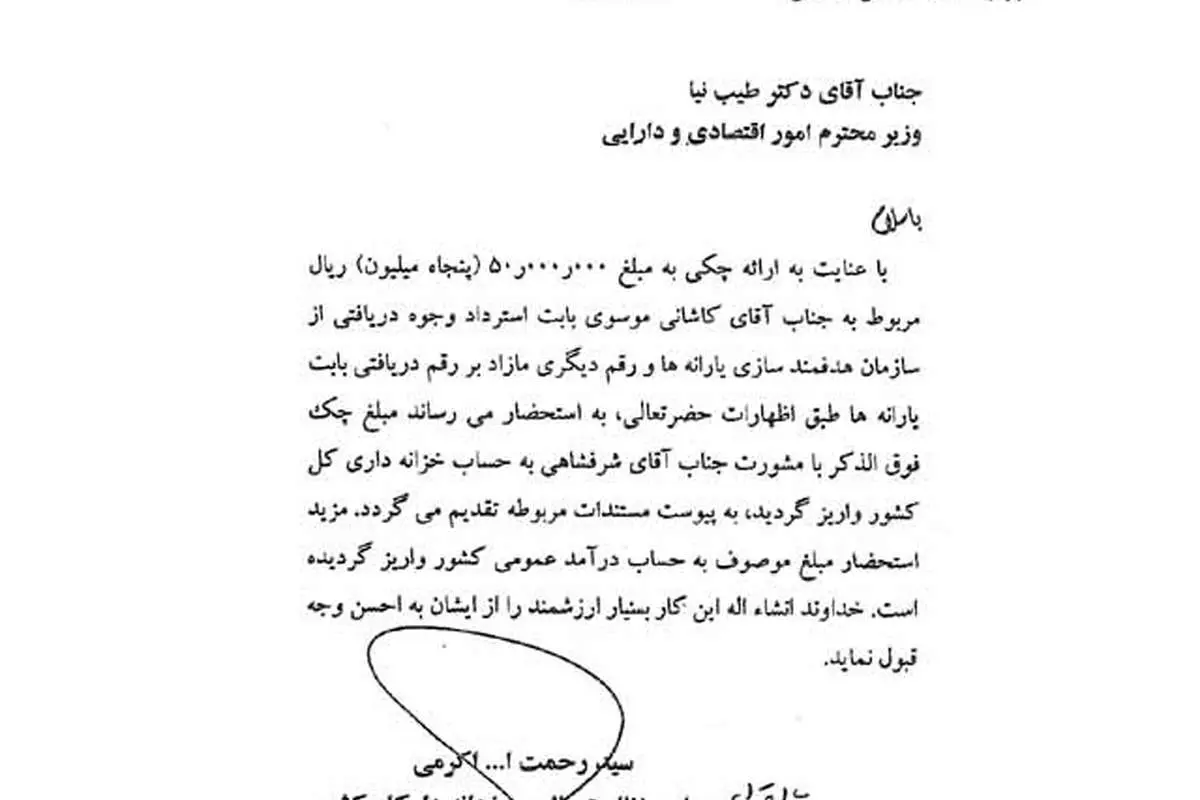 جناب آقای دکتر طیب نیا
وزیر محترم امور اقتصادی و دارایی
باسلام
با عنایت به ارائه چکی به مبلغ ۵۰ر۰۰۰ر۰۰۰ (پنجاه میلیون) ریال
مربوط به جناب آقای کاشانی موسوی بابت استرداد وجوه دریافتی از
سازمان هدفمند سازی یارانه ها و رقم دیگری مازاد بر رقم دریافتی بابت
یارانه ها طبق اظهارات حضرتعالی، به استحضار می رساند مبلغ چک
فوق الذکر با مشورت جناب آقای شرفشاهی به حساب خزانه داری کل
کشور واریز گردید، به پیوست مستندات مربوطه تقدیم می گردد. مزید
استحضار مبلغ موصوف به حساب درآمد عمومی کشور واریز گردیده
است. خداوند انشاء اله این کار بسیار ارزشمند را از ایشان به احسن وجه
قبول نماید.
سید رحمت ا... اکرمی